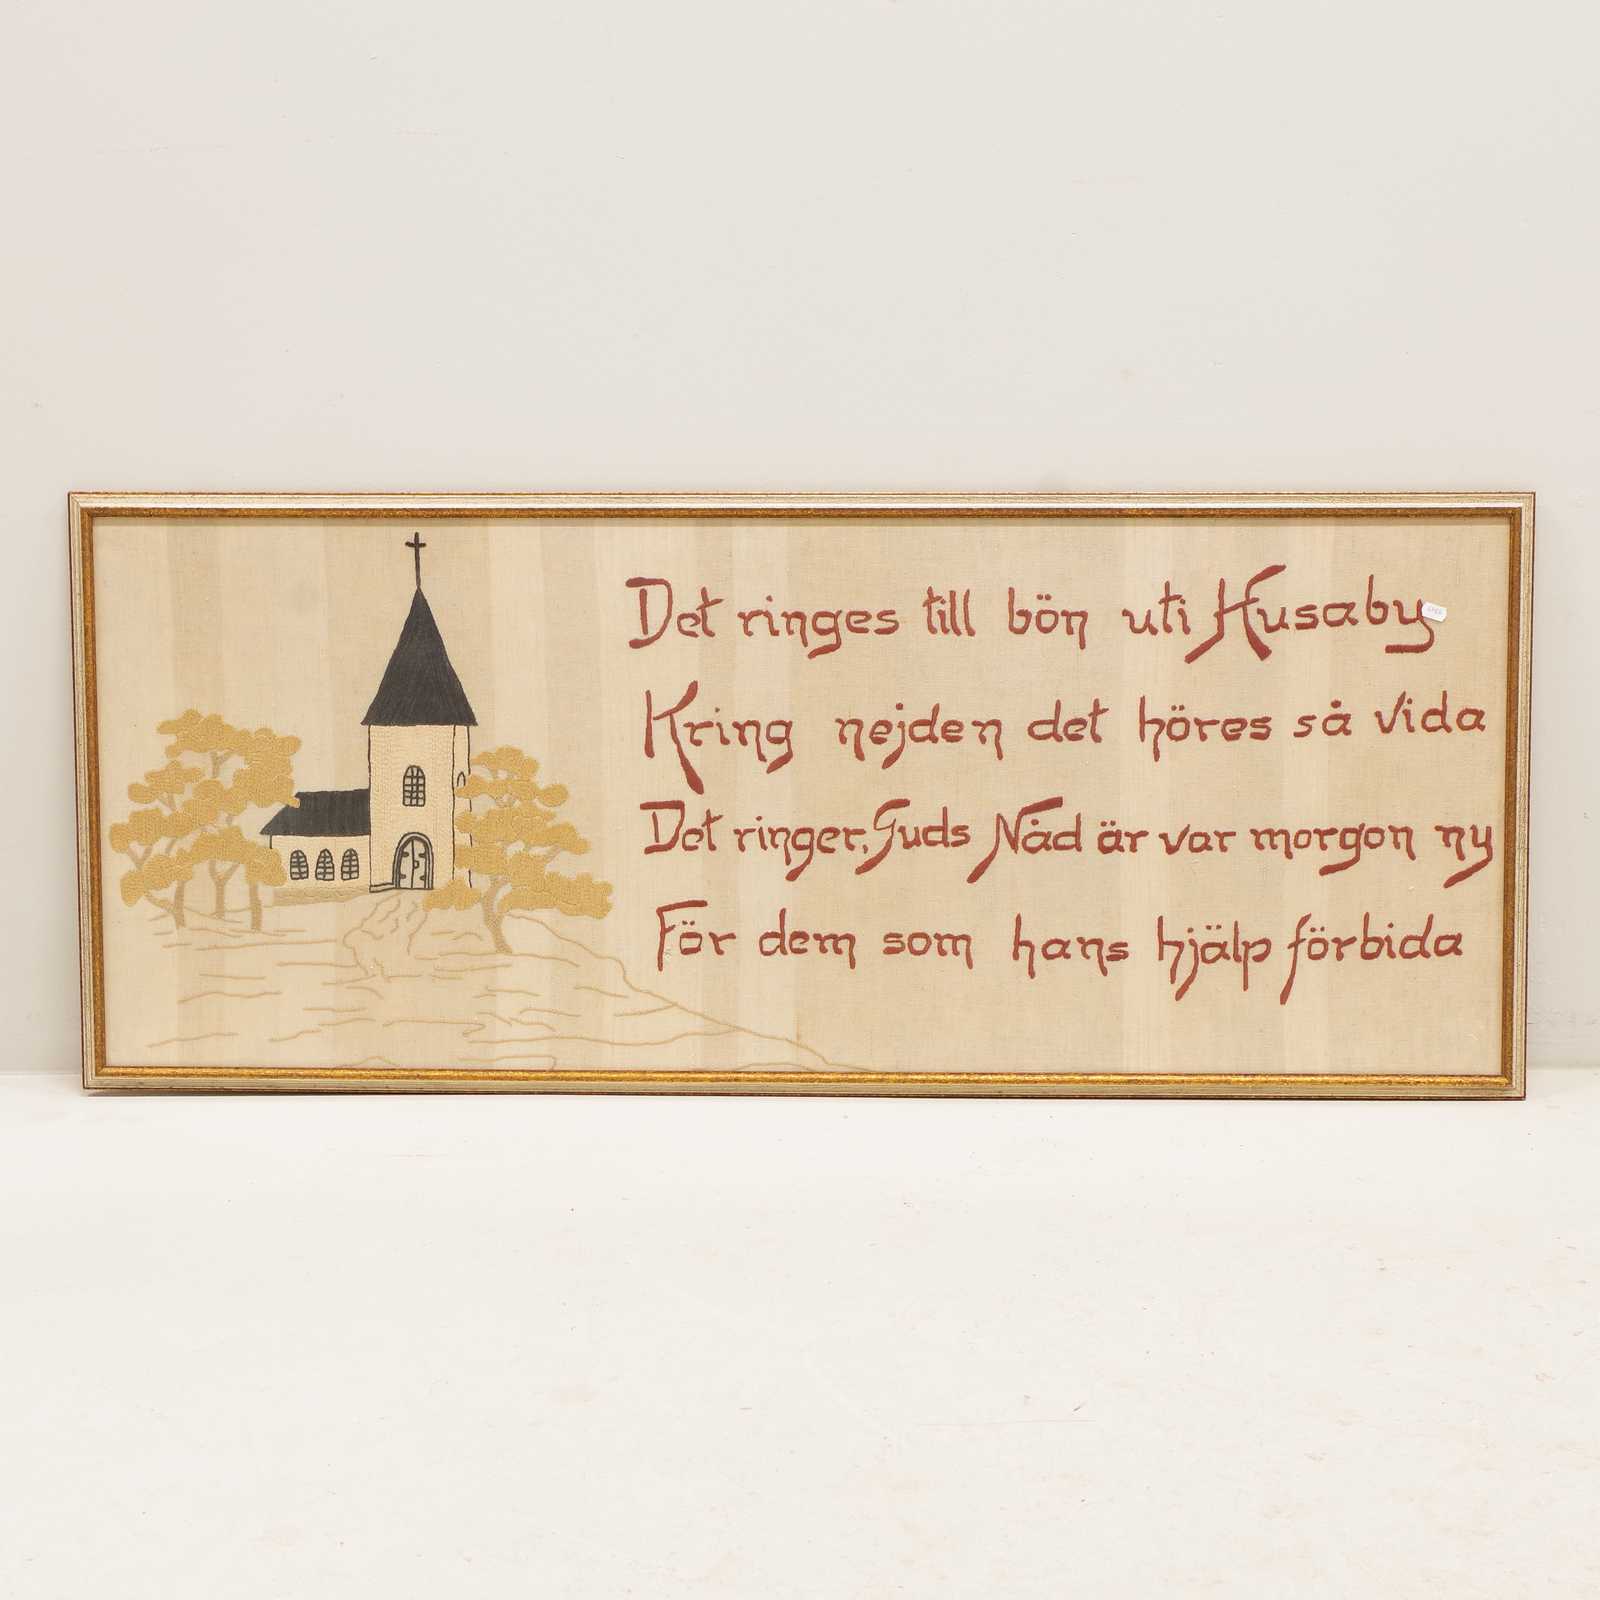 Det ringes till bön uti Husaby
Kring nejden det höres så vida
Det ringer, Guds Nåd är var morgon ny
För dem som hans hjälp förbida